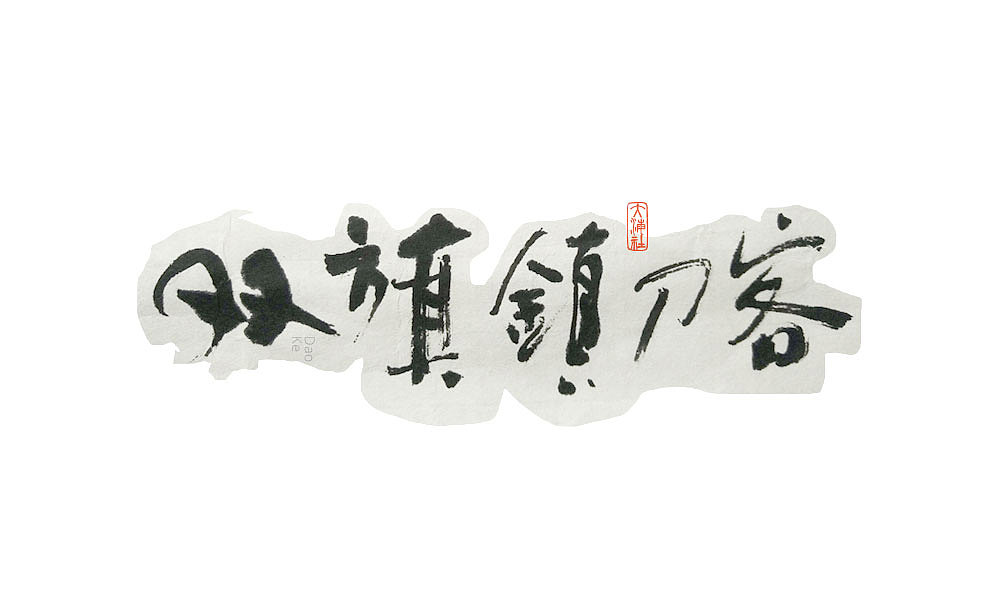 双旗鎮刀客
大浦社
Dao
Ke